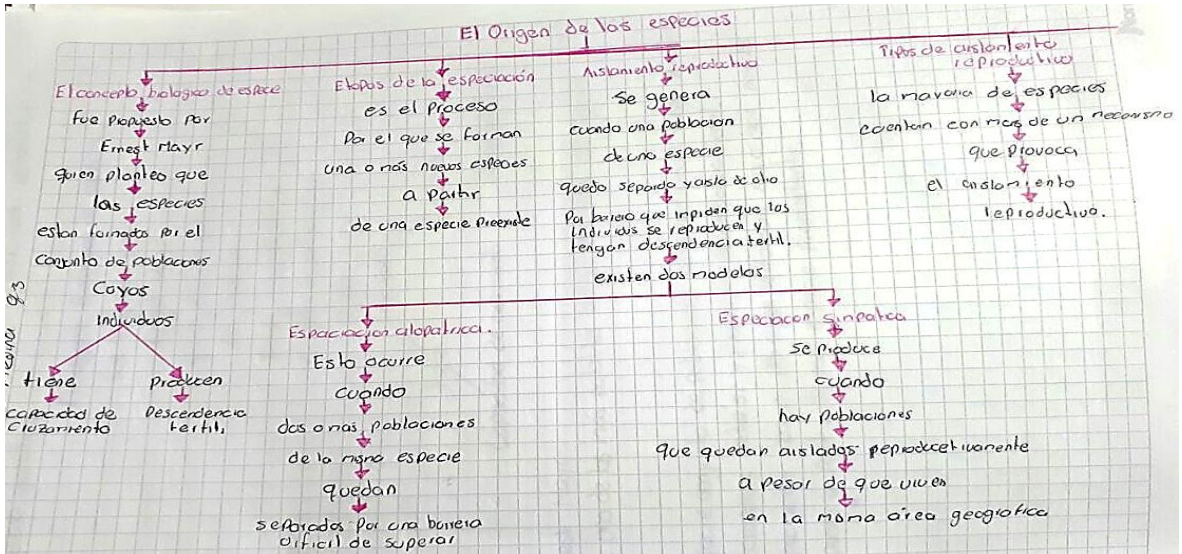 El Origen de las especies
El concepto biologico de especie
fue propuesto por
Ernest Mayr
quien planteo que
las especies
estan formados por el
conjunto de poblaciones
Coyos
Individuos
tiene
capacidad de
Cruzamiento
Producen
Descendencia
fertil,
Etapas de la especiación
es el proceso
Por el que se forman
una o más nuevas especies
a partir
de una especie Preexiste
Aislamiento reproductivo
Se genera
cuando una población
de una especie
quedo separado y aislo de otro
Por barrera que inpiden que los
individuos se reproducen y
tengan descendencia fertil.
existen dos modelos
Espaciacion alopatrica.
Esto ocurre
cuando
dos o mas poblaciones
de la misma especie
quedan
separados Por una barrera
dificil de superar
Especiacon Sinpatrca
se produce
cuando
hay poblaciones
que quedan aislados reproducetivamente
a pesar de que viven
en la misma área geografica
Tipos de aislamiento
reproductivo
la mayoria de especies
cuentan con mas de un mecanismo
que provoca
el aislamiento
reproductivo.